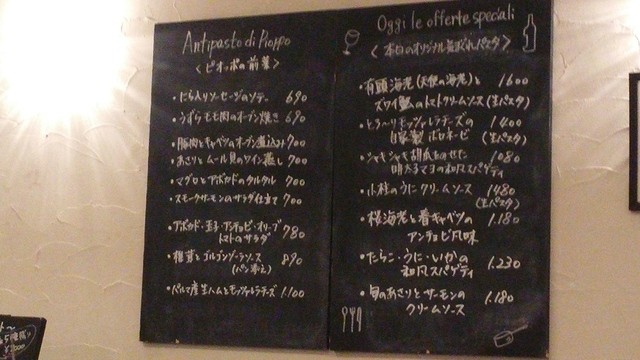 Antipasto di Pioppo
<ピオッポの前菜>
・にら入りソーセージのソテー 690
・うずらモモ肉のオーブン焼き 690
・豚肉とキャベツのオーブン煮込み 700
・あさりとムール貝のワイン蒸し 700
・マグロとアボカドのタルタル 700
・スモークサーモンのサラダ仕立て 700
・アボカド・玉子・アンチョビ・オリーブ
トマトのサラダ 780
・椎茸とゴルゴンゾーラソース 890
(パン添え)
・パルマ産生ハムとモッツァレラチーズ 1.100
Oggi le offerte speciali
<本日のオリジナル気まぐれパスタ>
・有頭海老(天使の海老)と 1600
ズワイ蟹のトマトクリームソース(生パスタ)
・とろ〜りモッツァレラチーズの 1400
自家製ボロネーゼ (生パスタ)
・シャキシャキ胡瓜をのせた 1080
明太子マヨの和風スパゲティ
・小柱のうにクリームソース 1480
(生パスタ)
・桜海老と春キャベツの 1.180
アンチョビ風味
・たらこ・うに・いかの 1.230
和風スパゲティ
・旬のあさりとサーモンの 1.180
クリームソース